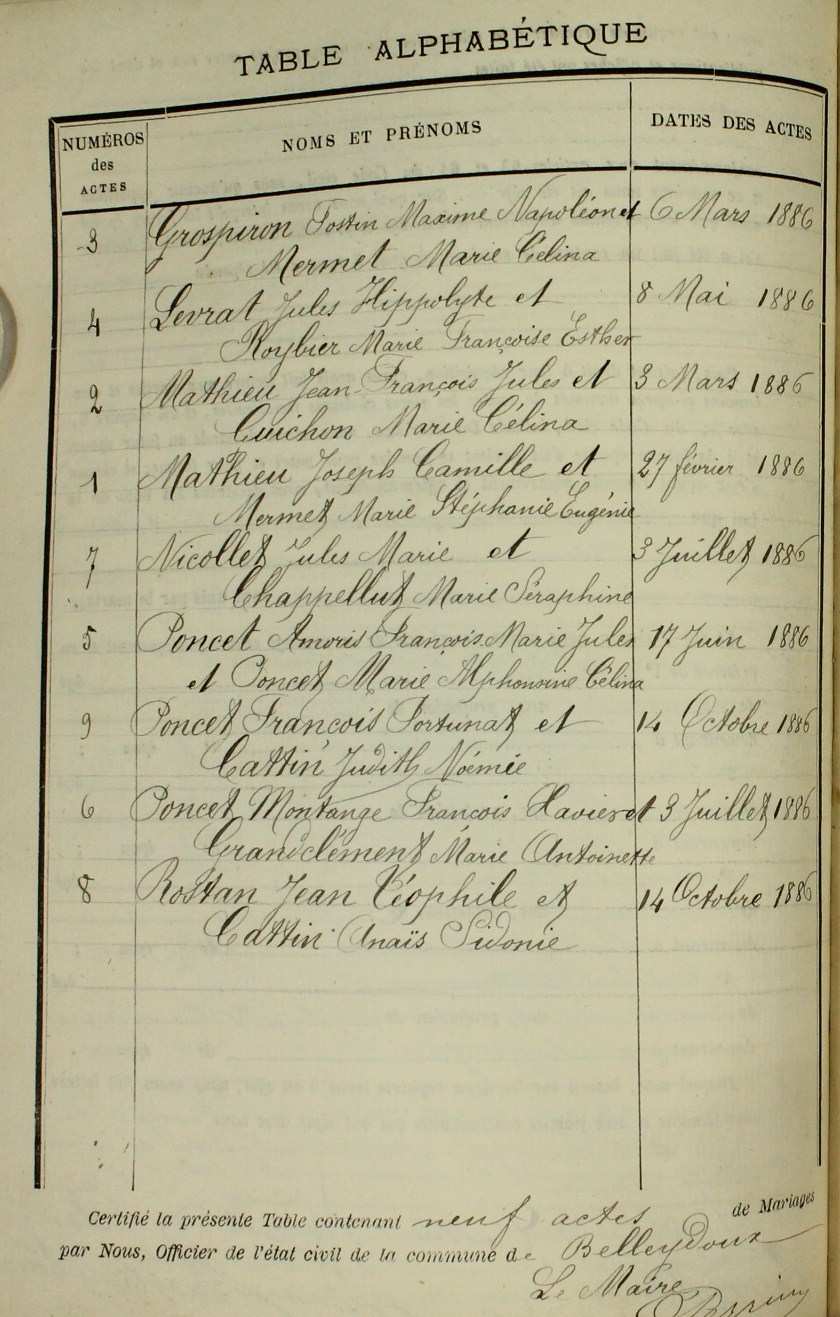 TABLE ALPHABÉTIQUE
NUMÉROS des ACTES
NOMS ET PRÉNOMS
DATES DES ACTES
3 Grospiron Fostin Maxime Napoléon et 6 Mars 1886
Mermet Marie Célina
4 Levrat Jules Hippolyte et 8 Mai 1886
Roybier Marie Françoise Esther
2 Mathieu Jean-François Jules et 3 Mars 1886
Guichon Marie Célina
1 Mathieu Joseph Camille et 27 février 1886
Mermet Marie Stéphanie Eugénie
7 Nicollet Jules Marie et 3 Juillet 1886
Chappellut Marie Séraphine
5 Poncet Amoris François Marie Jules 17 Juin 1886
et Poncet Marie Alphonsine Célina
9 Poncet François Fortunat et 14 Octobre 1886
Cattin Judith Noémie
6 Poncet Montange François Xavier et 3 Juillet 1886
Grandclément Marie Antoinette
8 Rostan Jean Téophile et 14 Octobre 1886
Cattin Anaïs Sidonie
Certifié la présente Table contenant neuf actes de Mariages
par Nous, Officier de l'état civil de la commune de Belleydoux
Le Maire